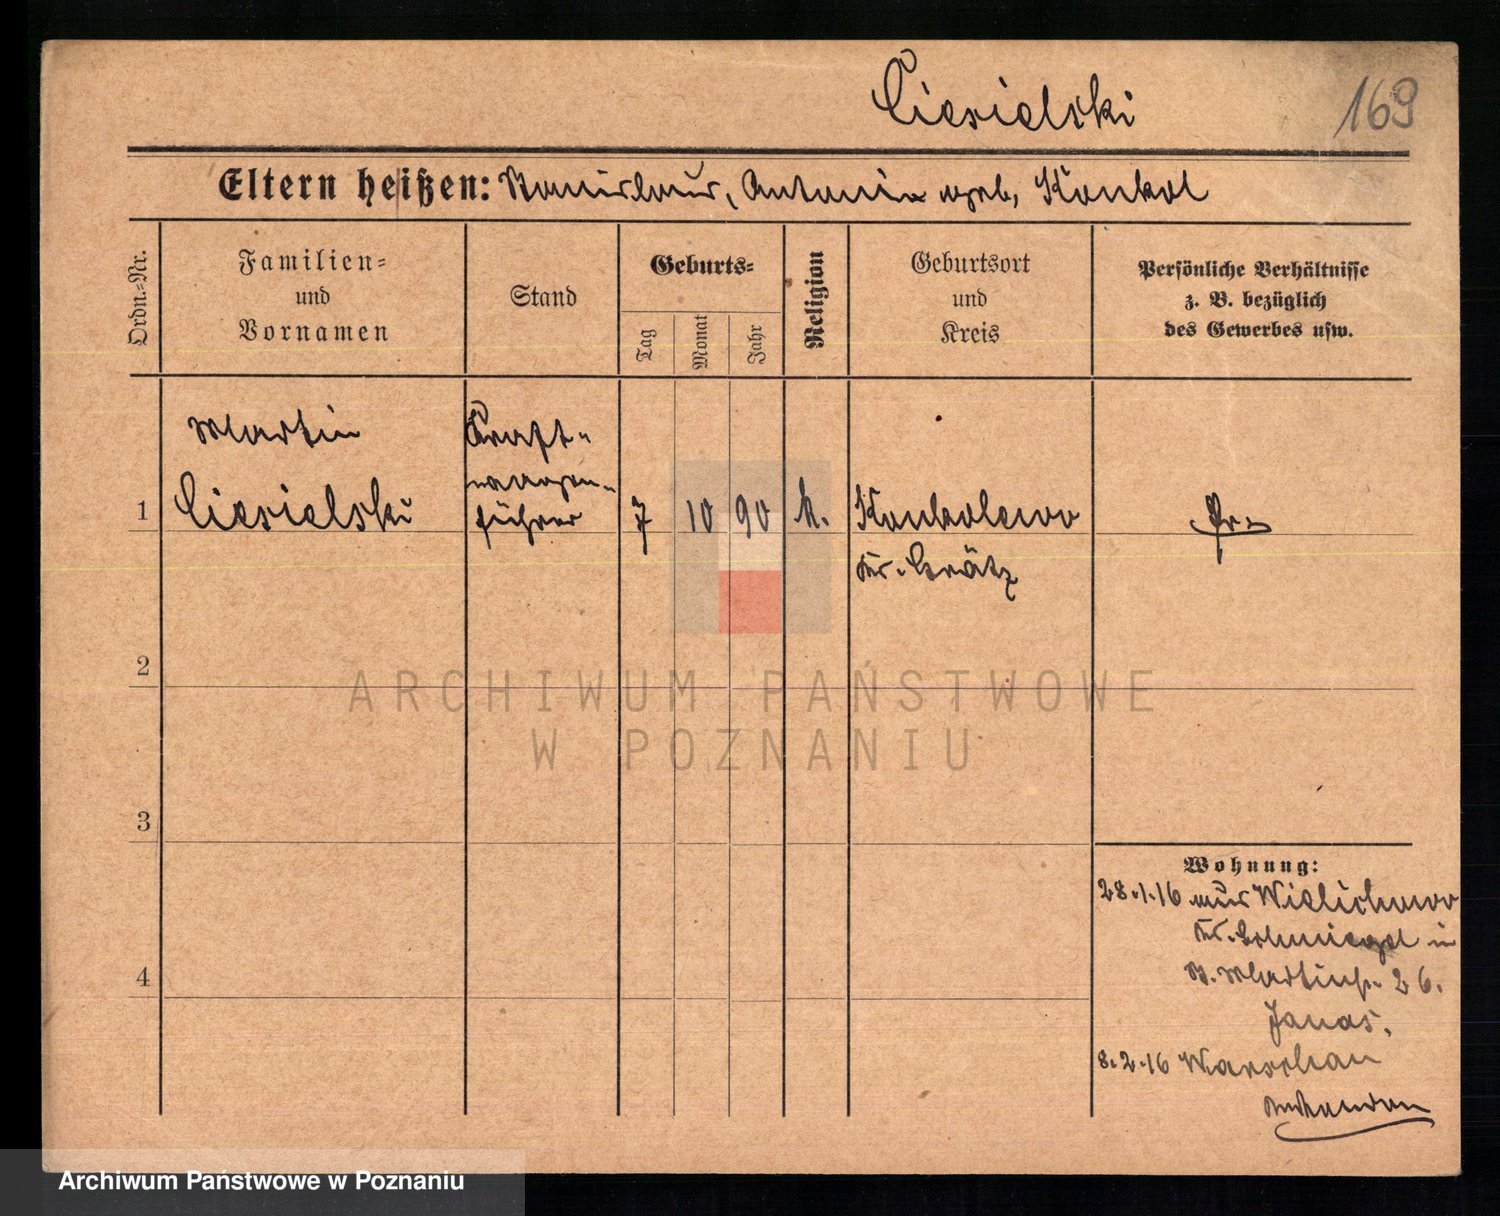 Ciesielski
169
Eltern heißen: Stanislaus, Antonia geb. Konkol
Ordn.-Nr.
Familien-
und
Vornamen
Stand
Geburts-
Tag
Monat
Jahr
Religion
Geburtsort
und
Kreis
Persönliche Verhältnisse
z. B. bezüglich
des Gewerbes usw.
Martin
Ciesielski
Kraft-
wagen-
führer
1
7
10
90
k.
Konkolewo
Kr. Grätz
Pr.
2
3
4
Wohnung:
28.1.16 aus Wielichowo
Kr. Schmiegel in
St. Martinstr. 26.
Janas.
8.2.16 Warschau
ARCHIWUM PAŃSTWOWE
W POZNANIU
Archiwum Państwowe w Poznaniu